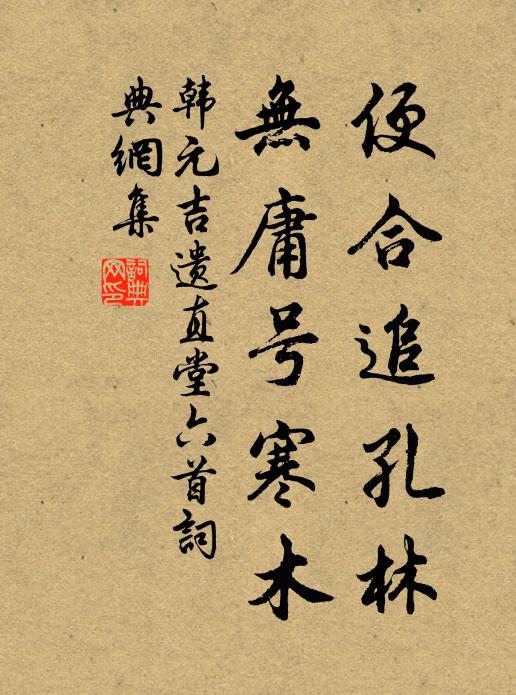 便合追孔林
無庸号寒木
韩元吉遗直堂六首詞
典網集
詞典網印